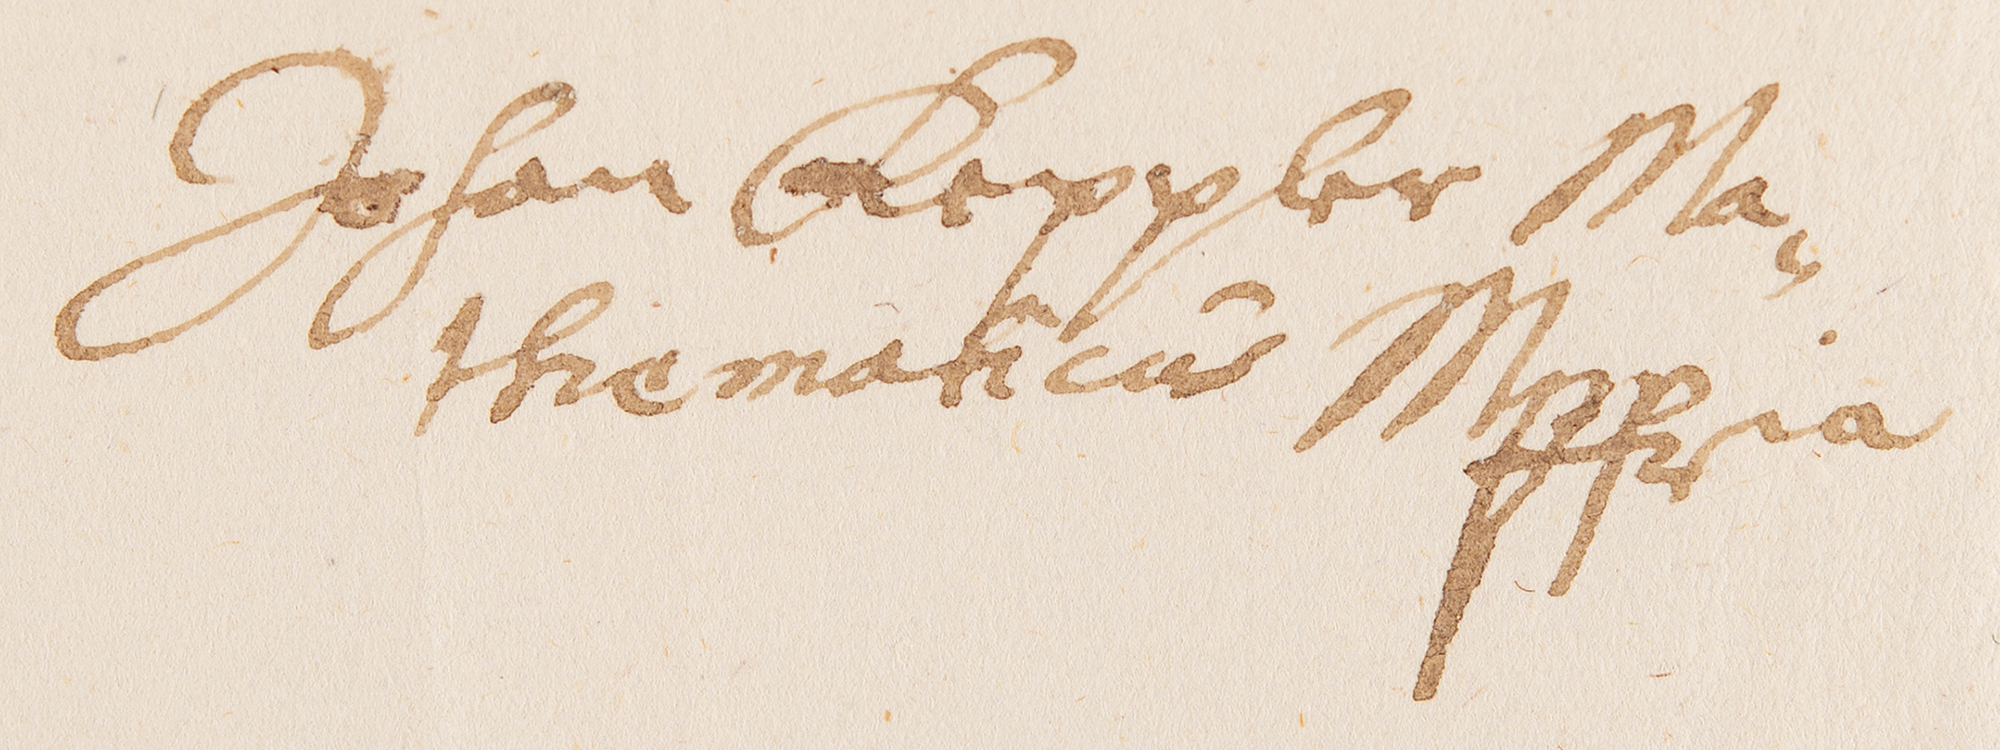 Johan Keppler Ma-
thematicus Mppria